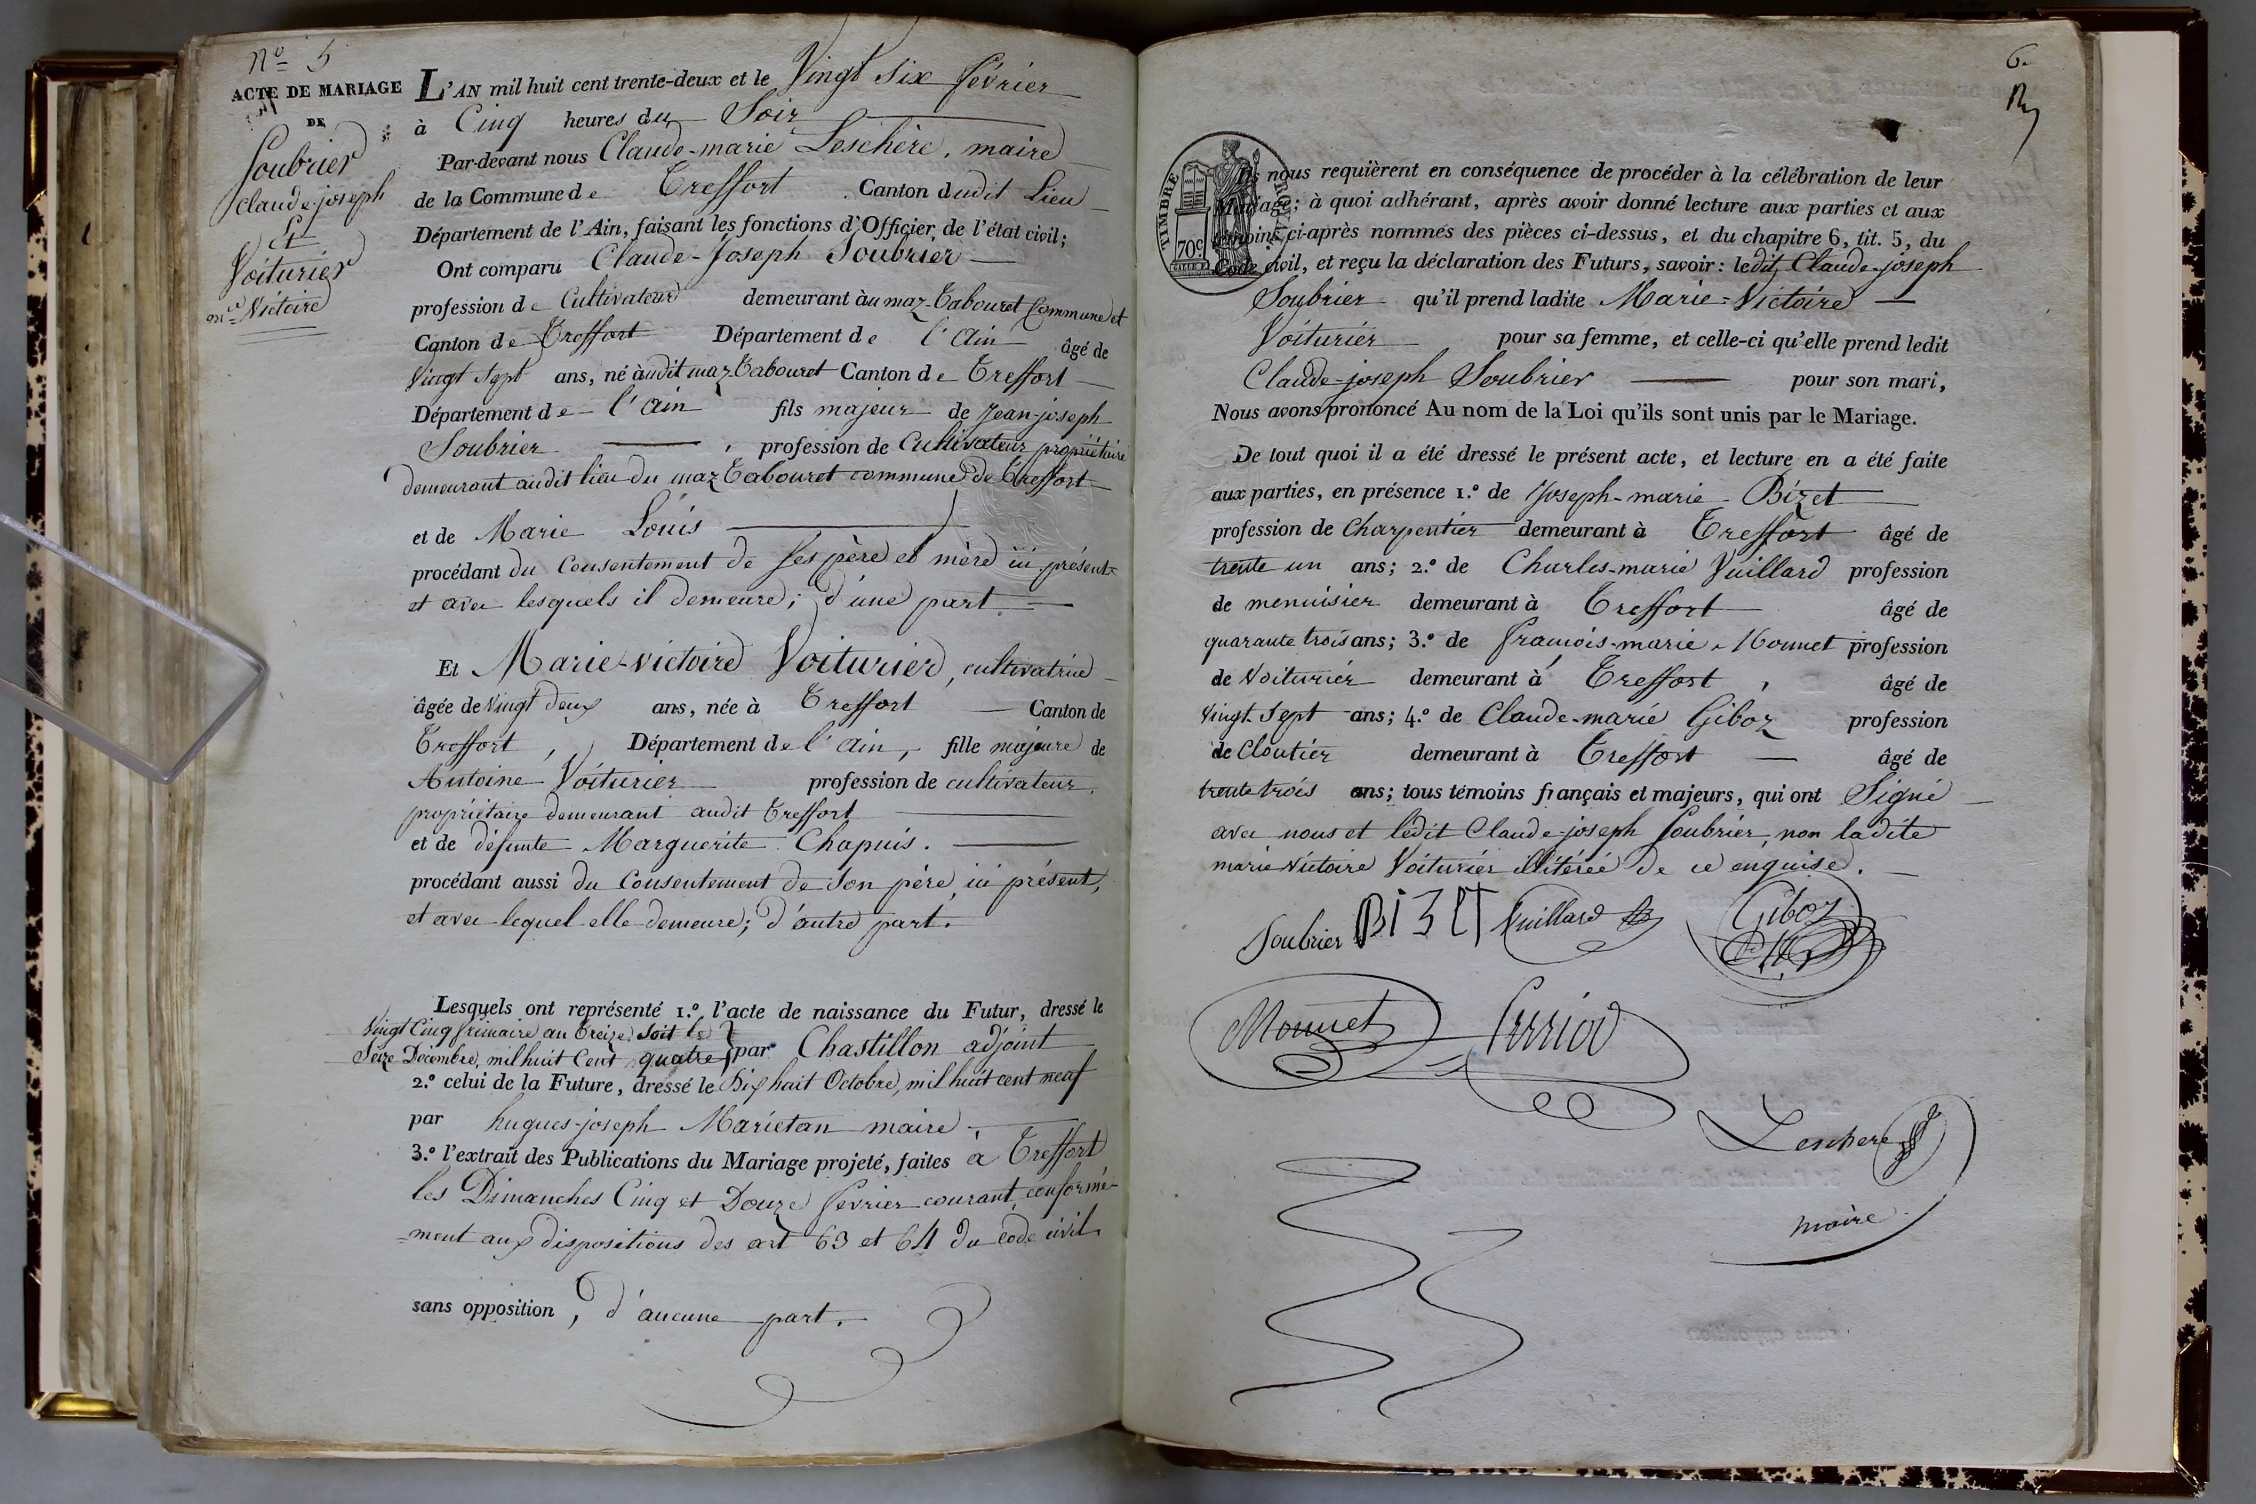 N.o 5
ACTE DE MARIAGE
DE
Soubrier
Claude-joseph
Et
Voiturier
m.e Victoire
L'AN mil huit cent trente-deux et le Vingt Six février
à Cinq heures du Soir
Par-devant nous Claude-marie Leschère, maire
de la Commune de Treffort Canton dudit Lieu
Département de l'Ain, faisant les fonctions d'Officier de l'état civil;
Ont comparu Claude-Joseph Soubrier
profession de Cultivateur demeurant àu maz-Tabouret Commune et
Canton de Treffort Département de l'Ain âgé de
Vingt Sept ans, né àudit maz Tabouret Canton de Treffort
Département de l'Ain fils majeur de Jean-joseph
Soubrier, profession de Cultivateur propriétaire
demeurant audit lieu du maz Tabouret commune de Treffort
et de Marie Louis
procédant du Consentement de Ses père et mère ici présents
et avec lesquels il demeure; d'une part
Et Marie-victoire Voiturier, cultivatrice
âgée de Vingt deux ans, née à Treffort Canton de
Treffort, Département de l'Ain, fille majeure de
Antoine Voiturier profession de cultivateur
propriétaire demeurant audit Treffort
et de défunte Marguerite Chapuis.
procédant aussi du Consentement de Son père, ici présent,
et avec lequel elle demeure; d'autre part.
Lesquels ont représenté 1.o l'acte de naissance du Futur, dressé le
Vingt Cinq frimaire an treize Soit le
Seize Décembre, mil huit Cent quatre par Chastillon adjoint
2.o celui de la Future, dressé le Dix huit Octobre, mil huit cent neuf
par hugues-joseph Mariétan maire.
3.o l'extrait des Publications du Mariage projeté, faites à Treffort
les Dimanches Cinq et Douze février courant, conformé-
-ment aux dispositions des art 63 et 64 du code civil
sans opposition, d'aucune part.
6.
TIMBRE ROYAL
70c
Ils nous requièrent en conséquence de procéder à la célébration de leur
Mariage; à quoi adhérant, après avoir donné lecture aux parties et aux
témoins ci-après nommés des pièces ci-dessus, et du chapitre 6, tit. 5, du
Code civil, et reçu la déclaration des Futurs, savoir: ledit Claude-joseph
Soubrier qu'il prend ladite Marie-Victoire
Voiturier pour sa femme, et celle-ci qu'elle prend ledit
Claude-joseph Soubrier pour son mari,
Nous avons prononcé Au nom de la Loi qu'ils sont unis par le Mariage.
De tout quoi il a été dressé le présent acte, et lecture en a été faite
aux parties, en présence 1.o de Joseph-marie Bizet
profession de Charpentier demeurant à Treffort âgé de
trente un ans; 2.o de Charles-marie Vuillard profession
de menuisier demeurant à Treffort âgé de
quarante trois ans; 3.o de François-marie Monnet profession
de Voiturier demeurant à Treffort, âgé de
Vingt-Sept ans; 4.o de Claude-marie Giboz profession
de Cloutier demeurant à Treffort âgé de
trente trois ans; tous témoins français et majeurs, qui ont Signé
avec nous et ledit Claude-joseph Soubrier, non ladite
marie Victoire Voiturier illitérée de ce enquise.
Soubrier BIZET Vuillard Giboz
Monnet Perriod
Leschere
maire